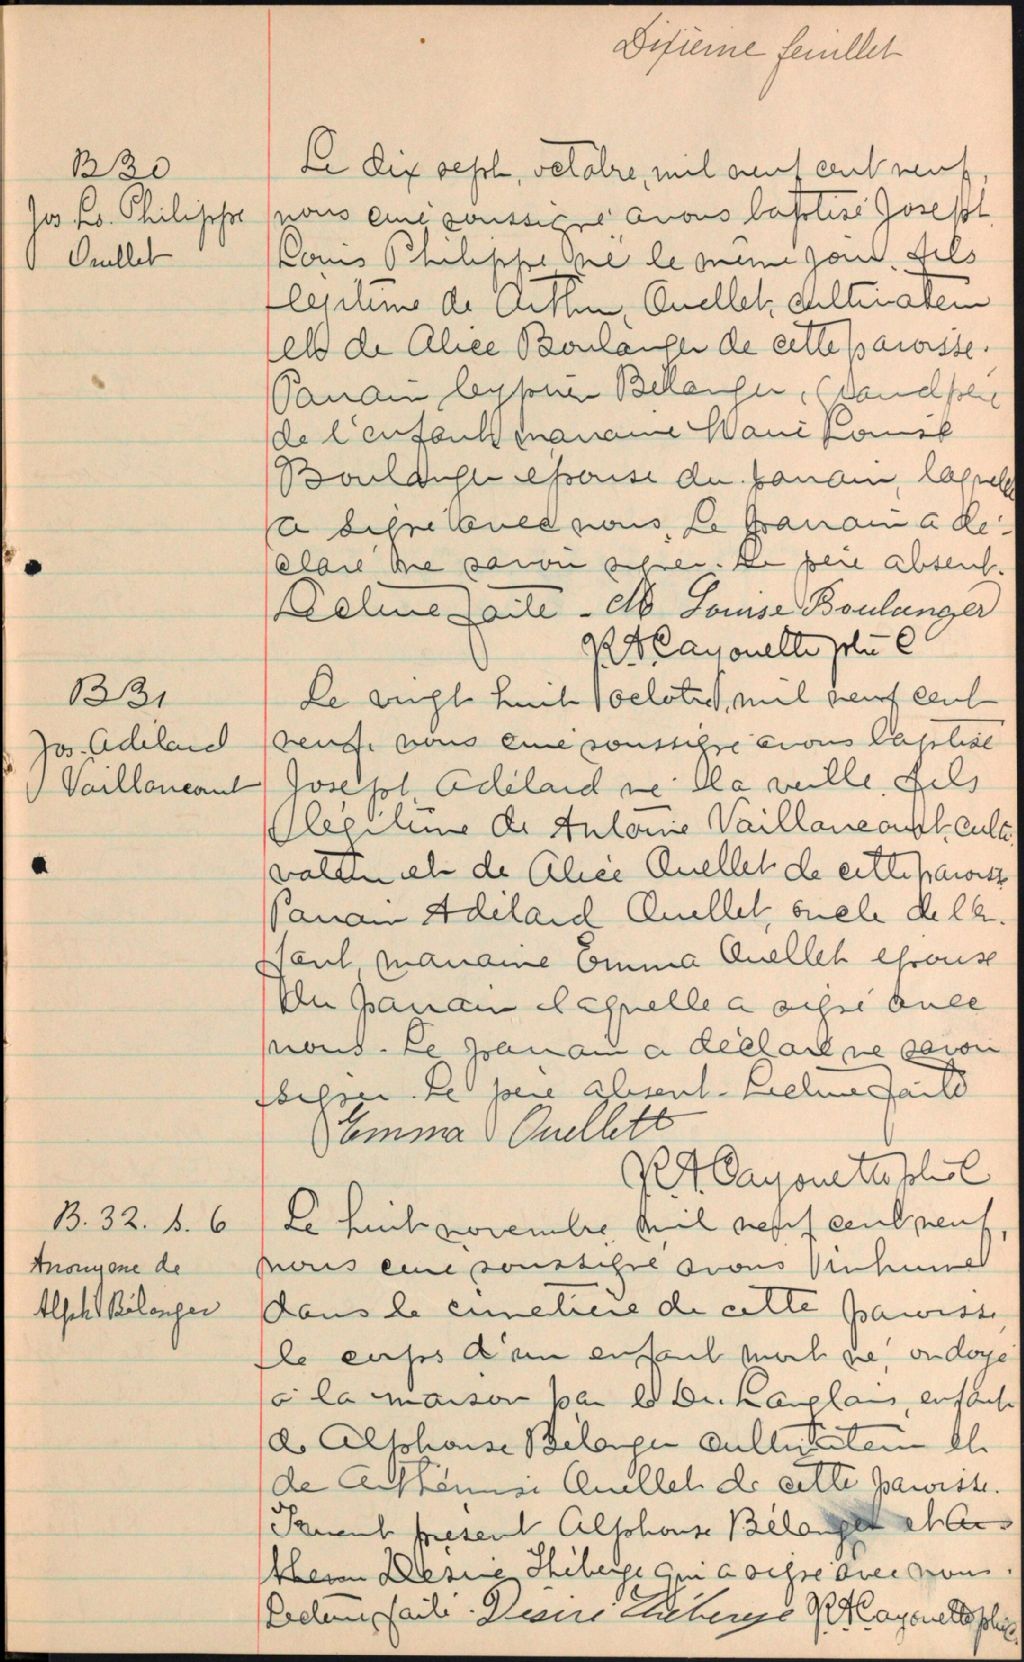 Dixieme feuillet
B 30
Jos. Ls. Philippe
Ouellet
Le dix sept, octobre, mil neuf cent neuf,
nous curé soussigné avons baptisé Joseph
Louis Philippe né le même jour, fils
légitime de Arthur Ouellet, cultivateur
et de Alice Boulanger de cette paroisse.
Parrain Cyprien Bélanger, Grand père
de l'enfant, marraine Marie Louise
Boulanger épouse du parrain, laquelle
a signé avec nous. Le parrain a dé-
claré ne savoir signer. Le père absent.
Lecture faite - M Louise Boulanger
R A Cayouette ptre C
B 31
Jos. Adélard
Vaillancourt
Le vingt huit octobre, mil neuf cent
neuf, nous curé soussigné avons baptisé
Joseph Adélard né la veille, fils
légitime de Antoine Vaillancourt, culti
vateur et de Alice Ouellet de cette paroisse
Parrain Adélard Ouellet, oncle de l'en-
fant, marraine Emma Ouellet épouse
du parrain laquelle a signé avec
nous. Le parrain a déclaré ne savoir
signer. Le père absent. Lecture faite
Emma Ouellett
R. A. Cayouette ptre C
B. 32. S. 6
Anonyme de
Alph Bélanger
Le huit novembre, mil neuf cent neuf,
nous curé soussigné avons inhumé
dans le cimetière de cette paroisse,
le corps d'un enfant mort né, ondoyé
à la maison par le Dr. Langlais, enfant
de Alphonse Bélanger cultivateur et
de Arthémise Ouellet de cette paroisse.
Furent présent Alphonse Bélanger et
Désiré Théberge qui a signé avec nous.
Lecture faite. Désiré Théberge R. A. Cayouette ptre C.